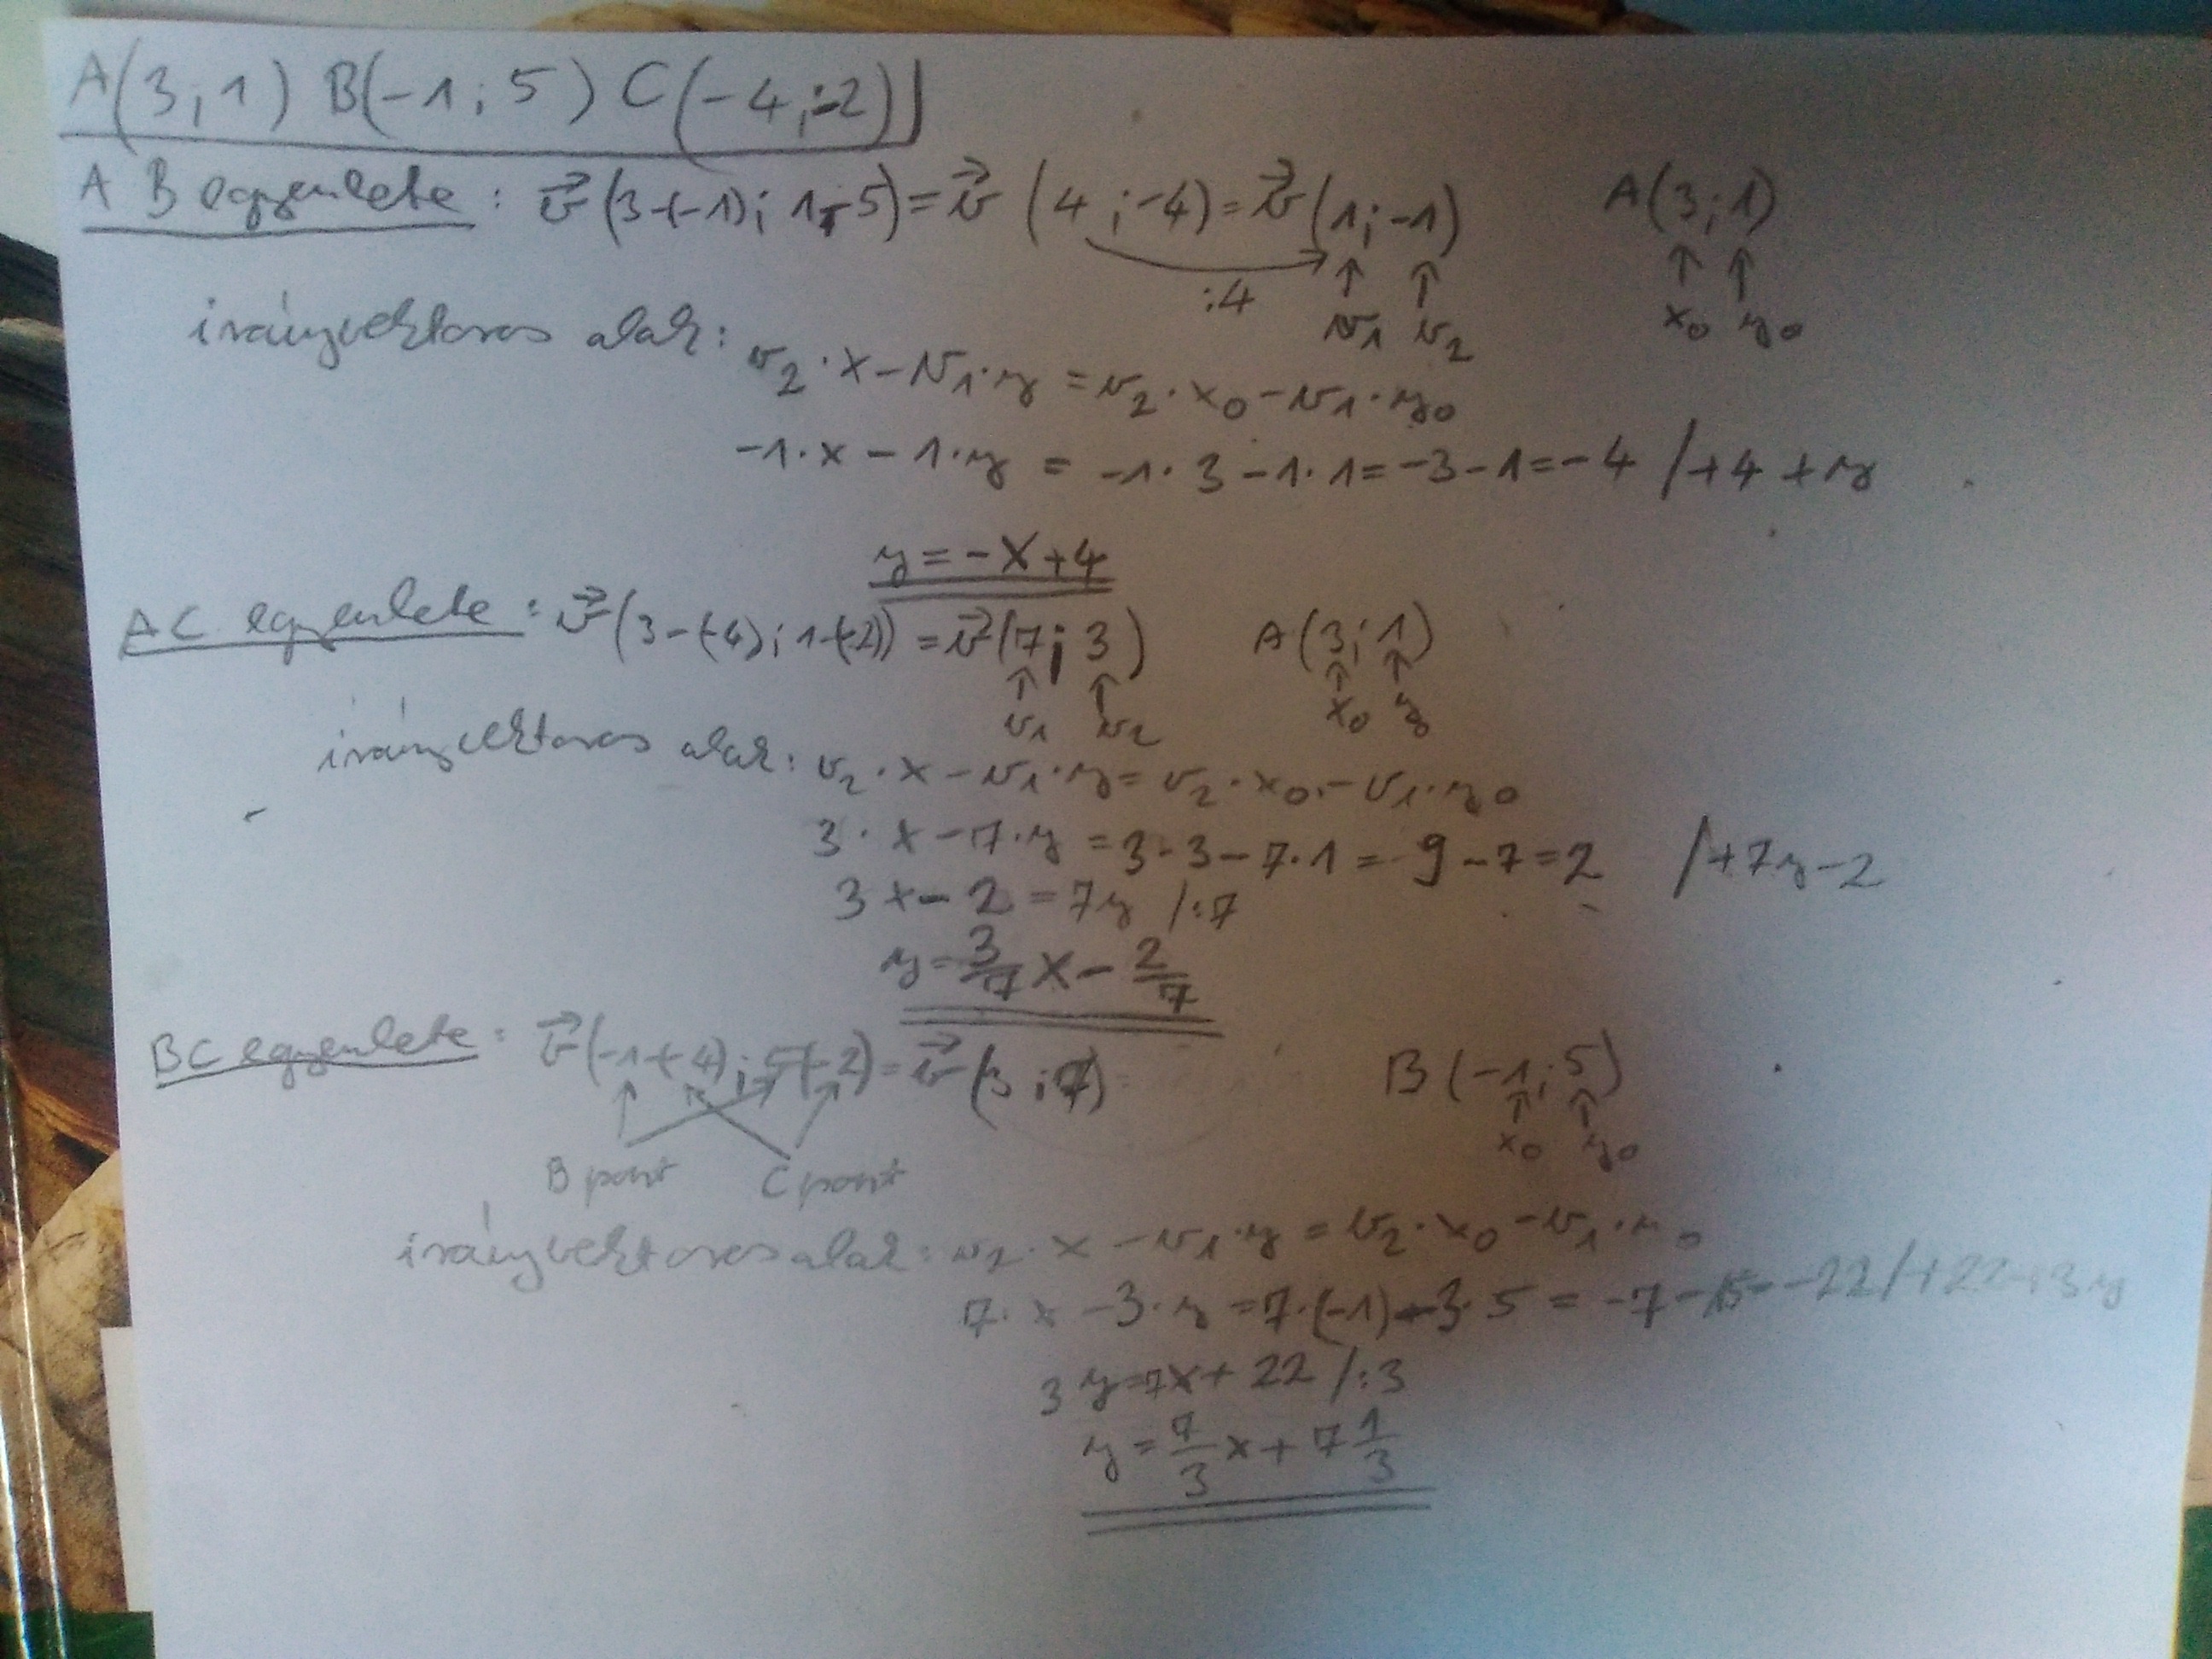 A(3;1) B(-1;5) C(-4;-2)
AB egyenlete: v⃗(3-(-1); 1-5) = v⃗(4;-4) = v⃗(1;-1) A(3;1)
:4 ↑ ↑ ↑ ↑
v1 v2 x0 y0
irányvektoros alak: v2·x-v1·y = v2·x0-v1·y0
-1·x-1·y = -1·3-1·1=-3-1=-4 /+4+y
y=-x+4
AC egyenlete: v⃗(3-(-4); 1-(-2)) = v⃗(7;3) A(3;1)
↑ ↑ ↑ ↑
v1 v2 x0 y0
irányvektoros alak: v2·x-v1·y=v2·x0-v1·y0
3·x-7·y=3·3-7·1=9-7=2 /+7y-2
3x-2=7y /:7
y=3/7x-2/7
BC egyenlete: v⃗(-1-(-4);5-(-2)) = v⃗(3;7) B(-1;5)
↑ ↑
x0 y0
B pont C pont
irányvektoros alak: v2·x-v1·y=v2·x0-v1·y0
7·x-3·y=7·(-1)-3·5=-7-15=-22/+22+3y
3y=7x+22 /:3
y=7/3x+7 1/3